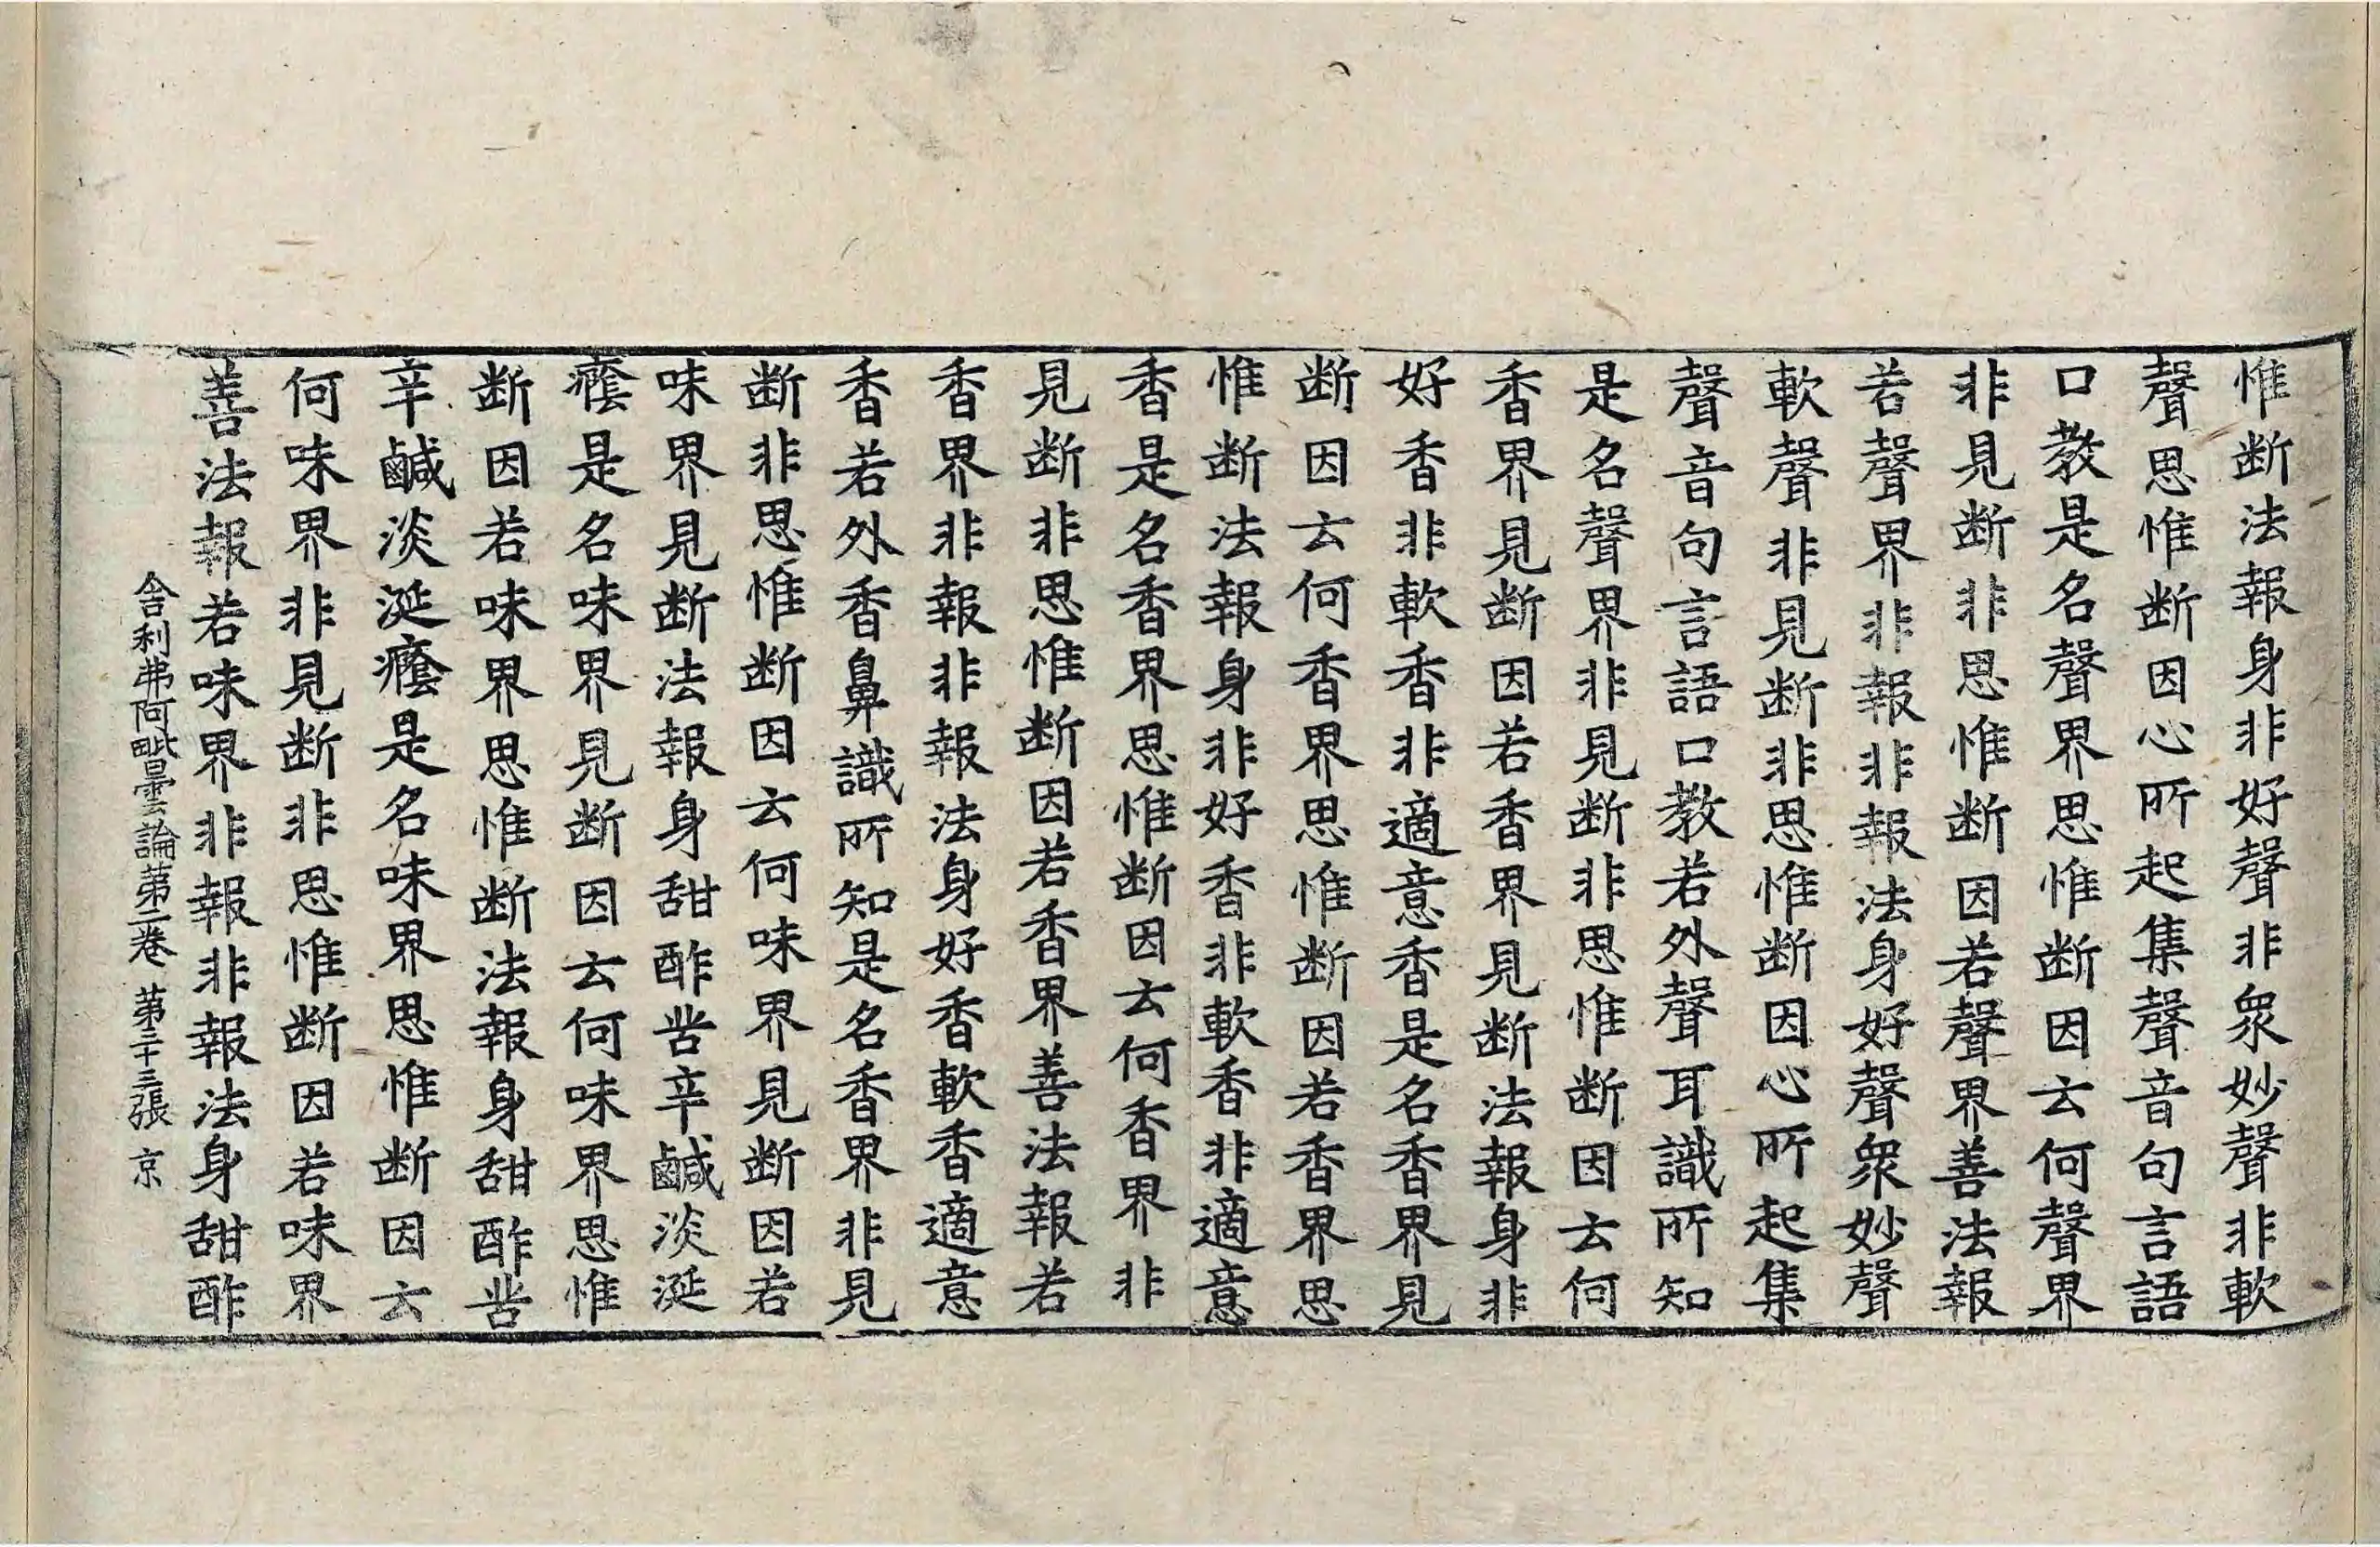 惟断法報身非好聲非衆妙聲非軟
聲思惟断因心所起集聲音句言語
口教是名聲界思惟断因云何聲界
非見断非思惟断因若聲界善法報
若聲界非報非報法身好聲衆妙聲
軟聲非見断非思惟断因心所起集
聲音句言語口教若外聲耳識所知
是名聲界非見断非思惟断因云何
香界見断因若香界見断法報身非
好香非軟香非適意香是名香界見
断因云何香界思惟断因若香界思
惟断法報身非好香非軟香非適意
香是名香界思惟断因云何香界非
見断非思惟断因若香界善法報若
香界非報非報法身好香軟香適意
香若外香鼻識所知是名香界非見
断非思惟断因云何味界見断因若
味界見断法報身甜酢苦辛鹹淡涎
癊是名味界見断因云何味界思惟
断因若味界思惟断法報身甜酢苦
辛鹹淡涎癊是名味界思惟断因云
何味界非見断非思惟断因若味界
善法報若味界非報非報法身甜酢
舍利弗阿毗曇論第二卷 第二十三張 京